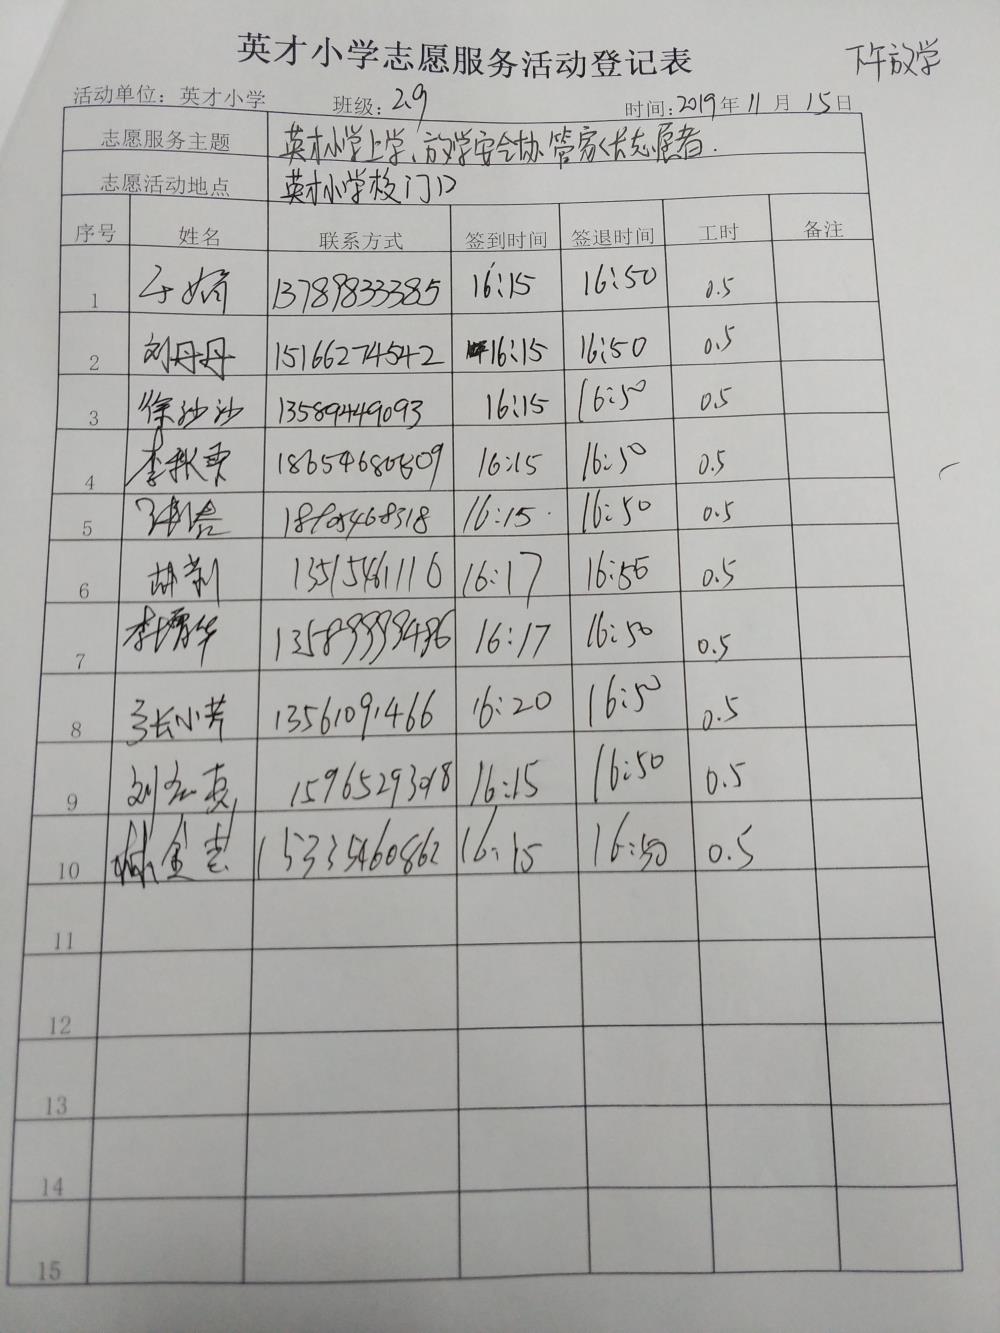 英才小学志愿服务活动登记表
下午放学
活动单位：英才小学 班级：2.9 时间：2019年11月15日
志愿服务主题 英才小学上学、放学安全协管家长志愿者.
志愿活动地点 英才小学校门口
序号 姓名 联系方式 签到时间 签退时间 工时 备注
1 于娇 13789833385 16:15 16:50 0.5
2 刘丹丹 15166274542 16:15 16:50 0.5
3 徐沙沙 13589449093 16:15 16:50 0.5
4 16:15 16:50 0.5
5 16:15 16:50 0.5
6 13515461116 16:17 16:50 0.5
7 16:17 16:50 0.5
8 张小芳 13561091466 16:20 16:50 0.5
9 16:15 16:50 0.5
10 15335460862 16:15 16:50 0.5
11
12
13
14
15